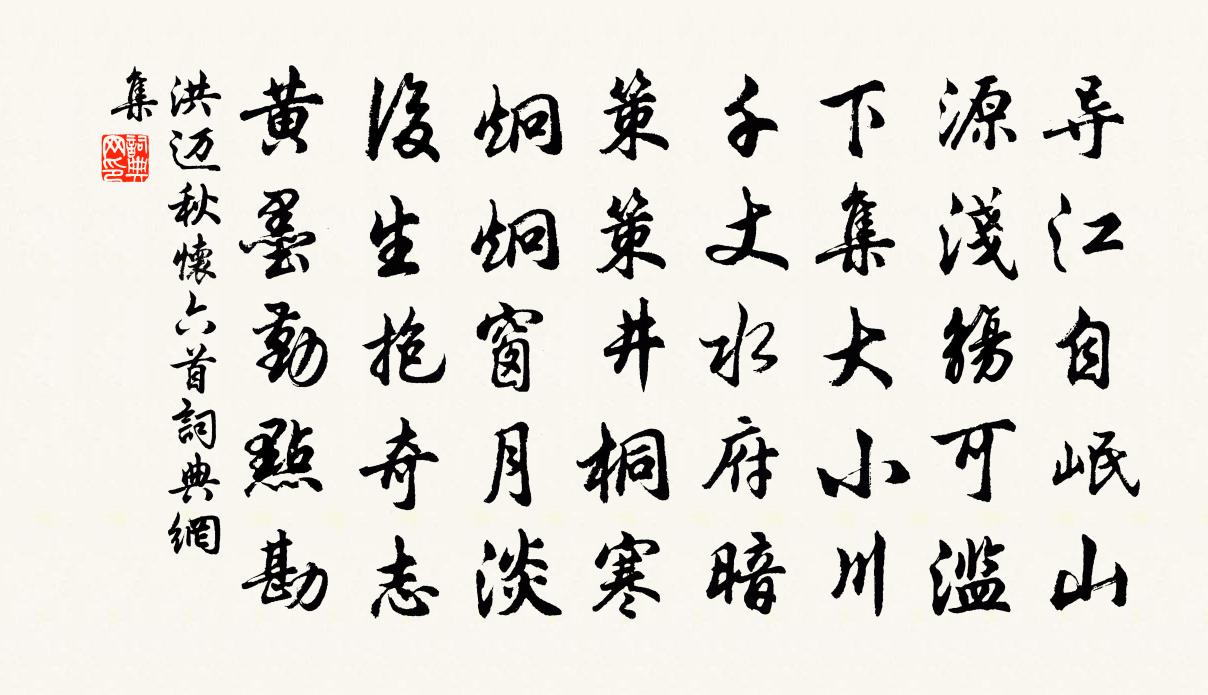 导江自岷山
源淺觴可濫
下集大小川
千丈水府暗
策策井桐寒
炯炯窗月淡
後生抱奇志
黄墨勤點勘
洪迈秋懷六首詞典網
集
詞典
网印